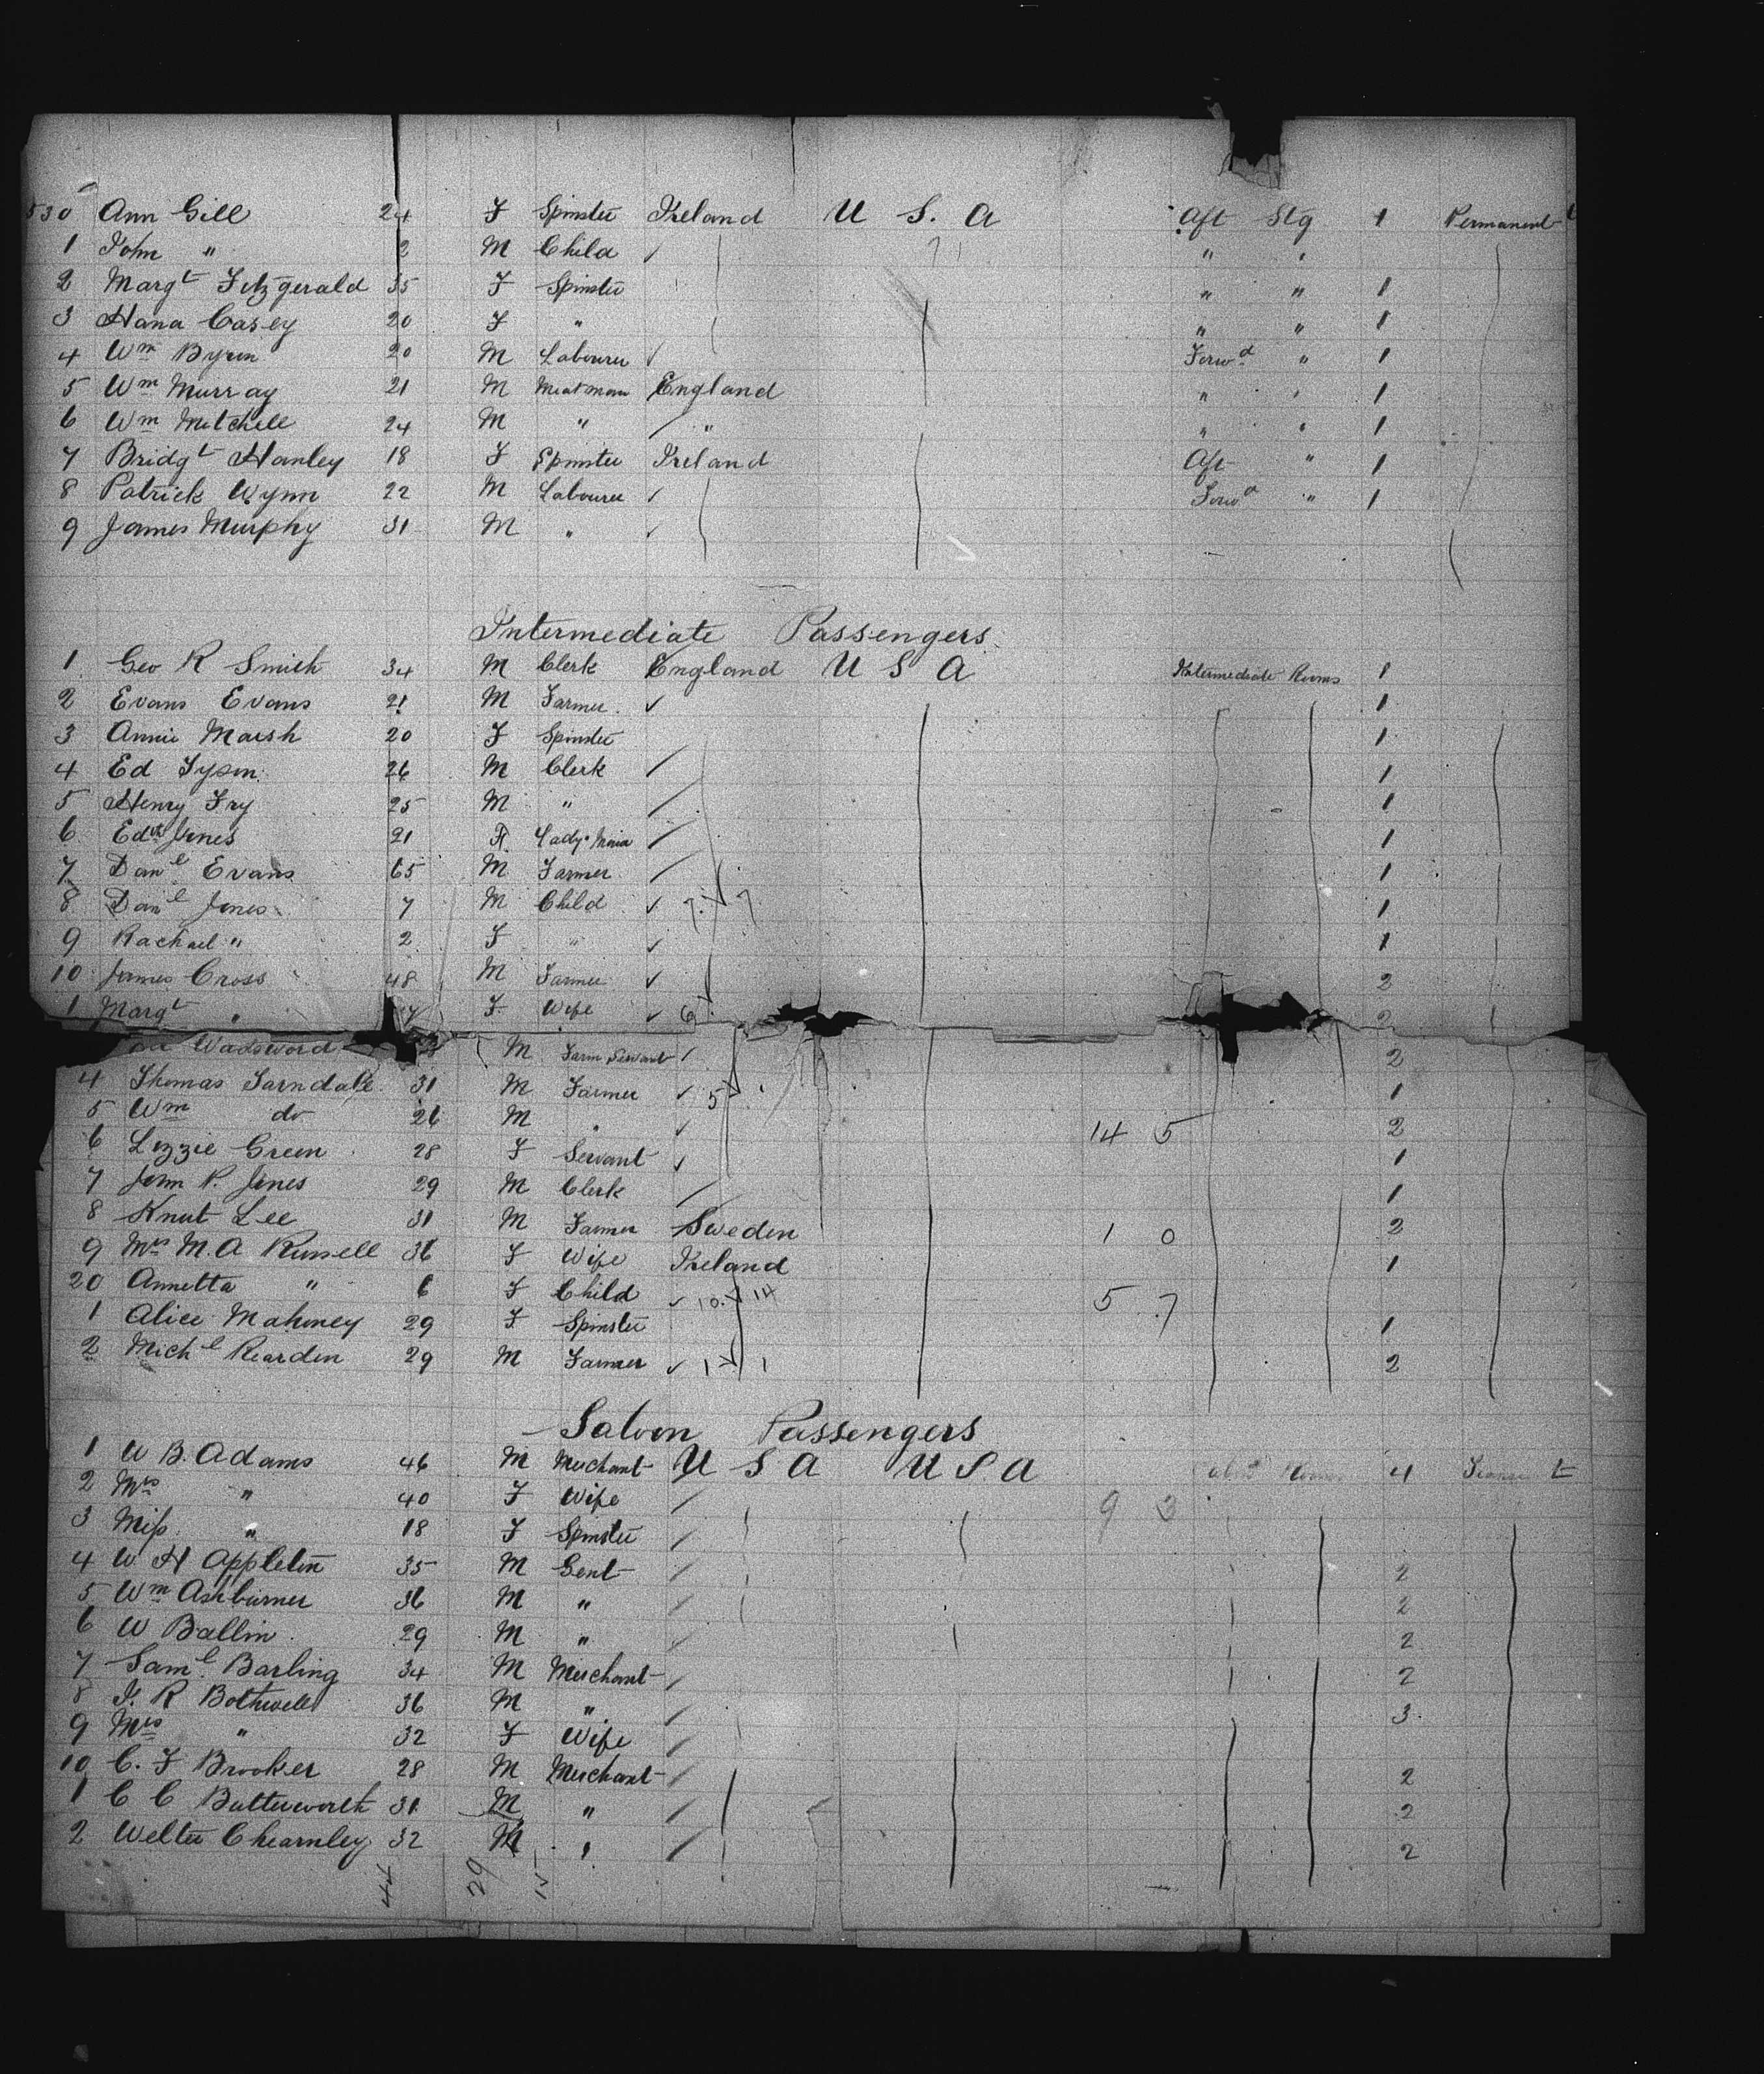 530 Ann Gill 24 F Spinster Ireland U S. A Aft Stg 1 Permanent
1 John " 2 M Child ✓ " "
2 Margt Fitzgerald 35 F Spinster " " 1
3 Hana Casey 20 F " " " 1
4 Wm Byron 20 M Labourer ✓ Forwd " 1
5 Wm Murray 21 M Meatman England " " 1
6 Wm Mitchell 24 M " / " " " 1
7 Bridgt Hanley 18 F Spinster Ireland Aft " 1
8 Patrick Wynn 22 M Labourer ✓ Forwd " 1
9 James Murphy 31 M " ✓
Intermediate Passengers
1 Geo R Smith 34 M Clerk England U S A Intermediate Rooms 1
2 Evans Evans 21 M Farmer ✓ 1
3 Annie Marsh 20 F Spinster 1
4 Ed Tyson 26 M Clerk / 1
5 Henry Fry 25 M " / 1
6 Edth Jones 21 F Lady's Maid / 1
7 Danl Evans 65 M Farmer / 1
8 Danl Jones 7 M Child ✓ 7 ✓ 7 1
9 Rachael " 2 F " ✓ 1
10 James Cross 48 M Farmer ✓ 2
1 Margt " F Wife ✓ 6 2
Wadsword M Farm Servant ✓ 2
4 Thomas Tarndale 31 M Farmer ✓ 5 1
5 Wm do 26 M " ✓ 14 5 2
6 Lizzie Green 28 F Servant ✓ 1
7 John P. Jones 29 M Clerk / 1
8 Knut Lee 31 M Farmer Sweden 1 0 2
9 Mrs M. A Russell 36 F Wife Ireland 1
20 Annetta " 6 F Child ✓ 10 ✓ 14 5 7
1 Alice Mahoney 29 F Spinster 1
2 Michl Rearden 29 M Farmer ✓ 1 ✓ 1 2
Saloon Passengers
1 W B. Adams 46 M Merchant U S A U S A 4
2 Mrs " 40 F Wife / 9 3
3 Miss " 18 F Spinster /
4 W H Appleton 35 M Gent / 2
5 Wm Ashburner 36 M " / 2
6 W Ballin 29 M " / 2
7 Saml Barling 34 M Merchant / 2
8 J. R Bothwell 36 M " / 3
9 Mrs " 32 F Wife /
10 C. F Brooker 28 M Merchant / 2
1 C C Butterworth 31 M " / 2
2 Welter Chearnley 32 M " / 2
44 29 15